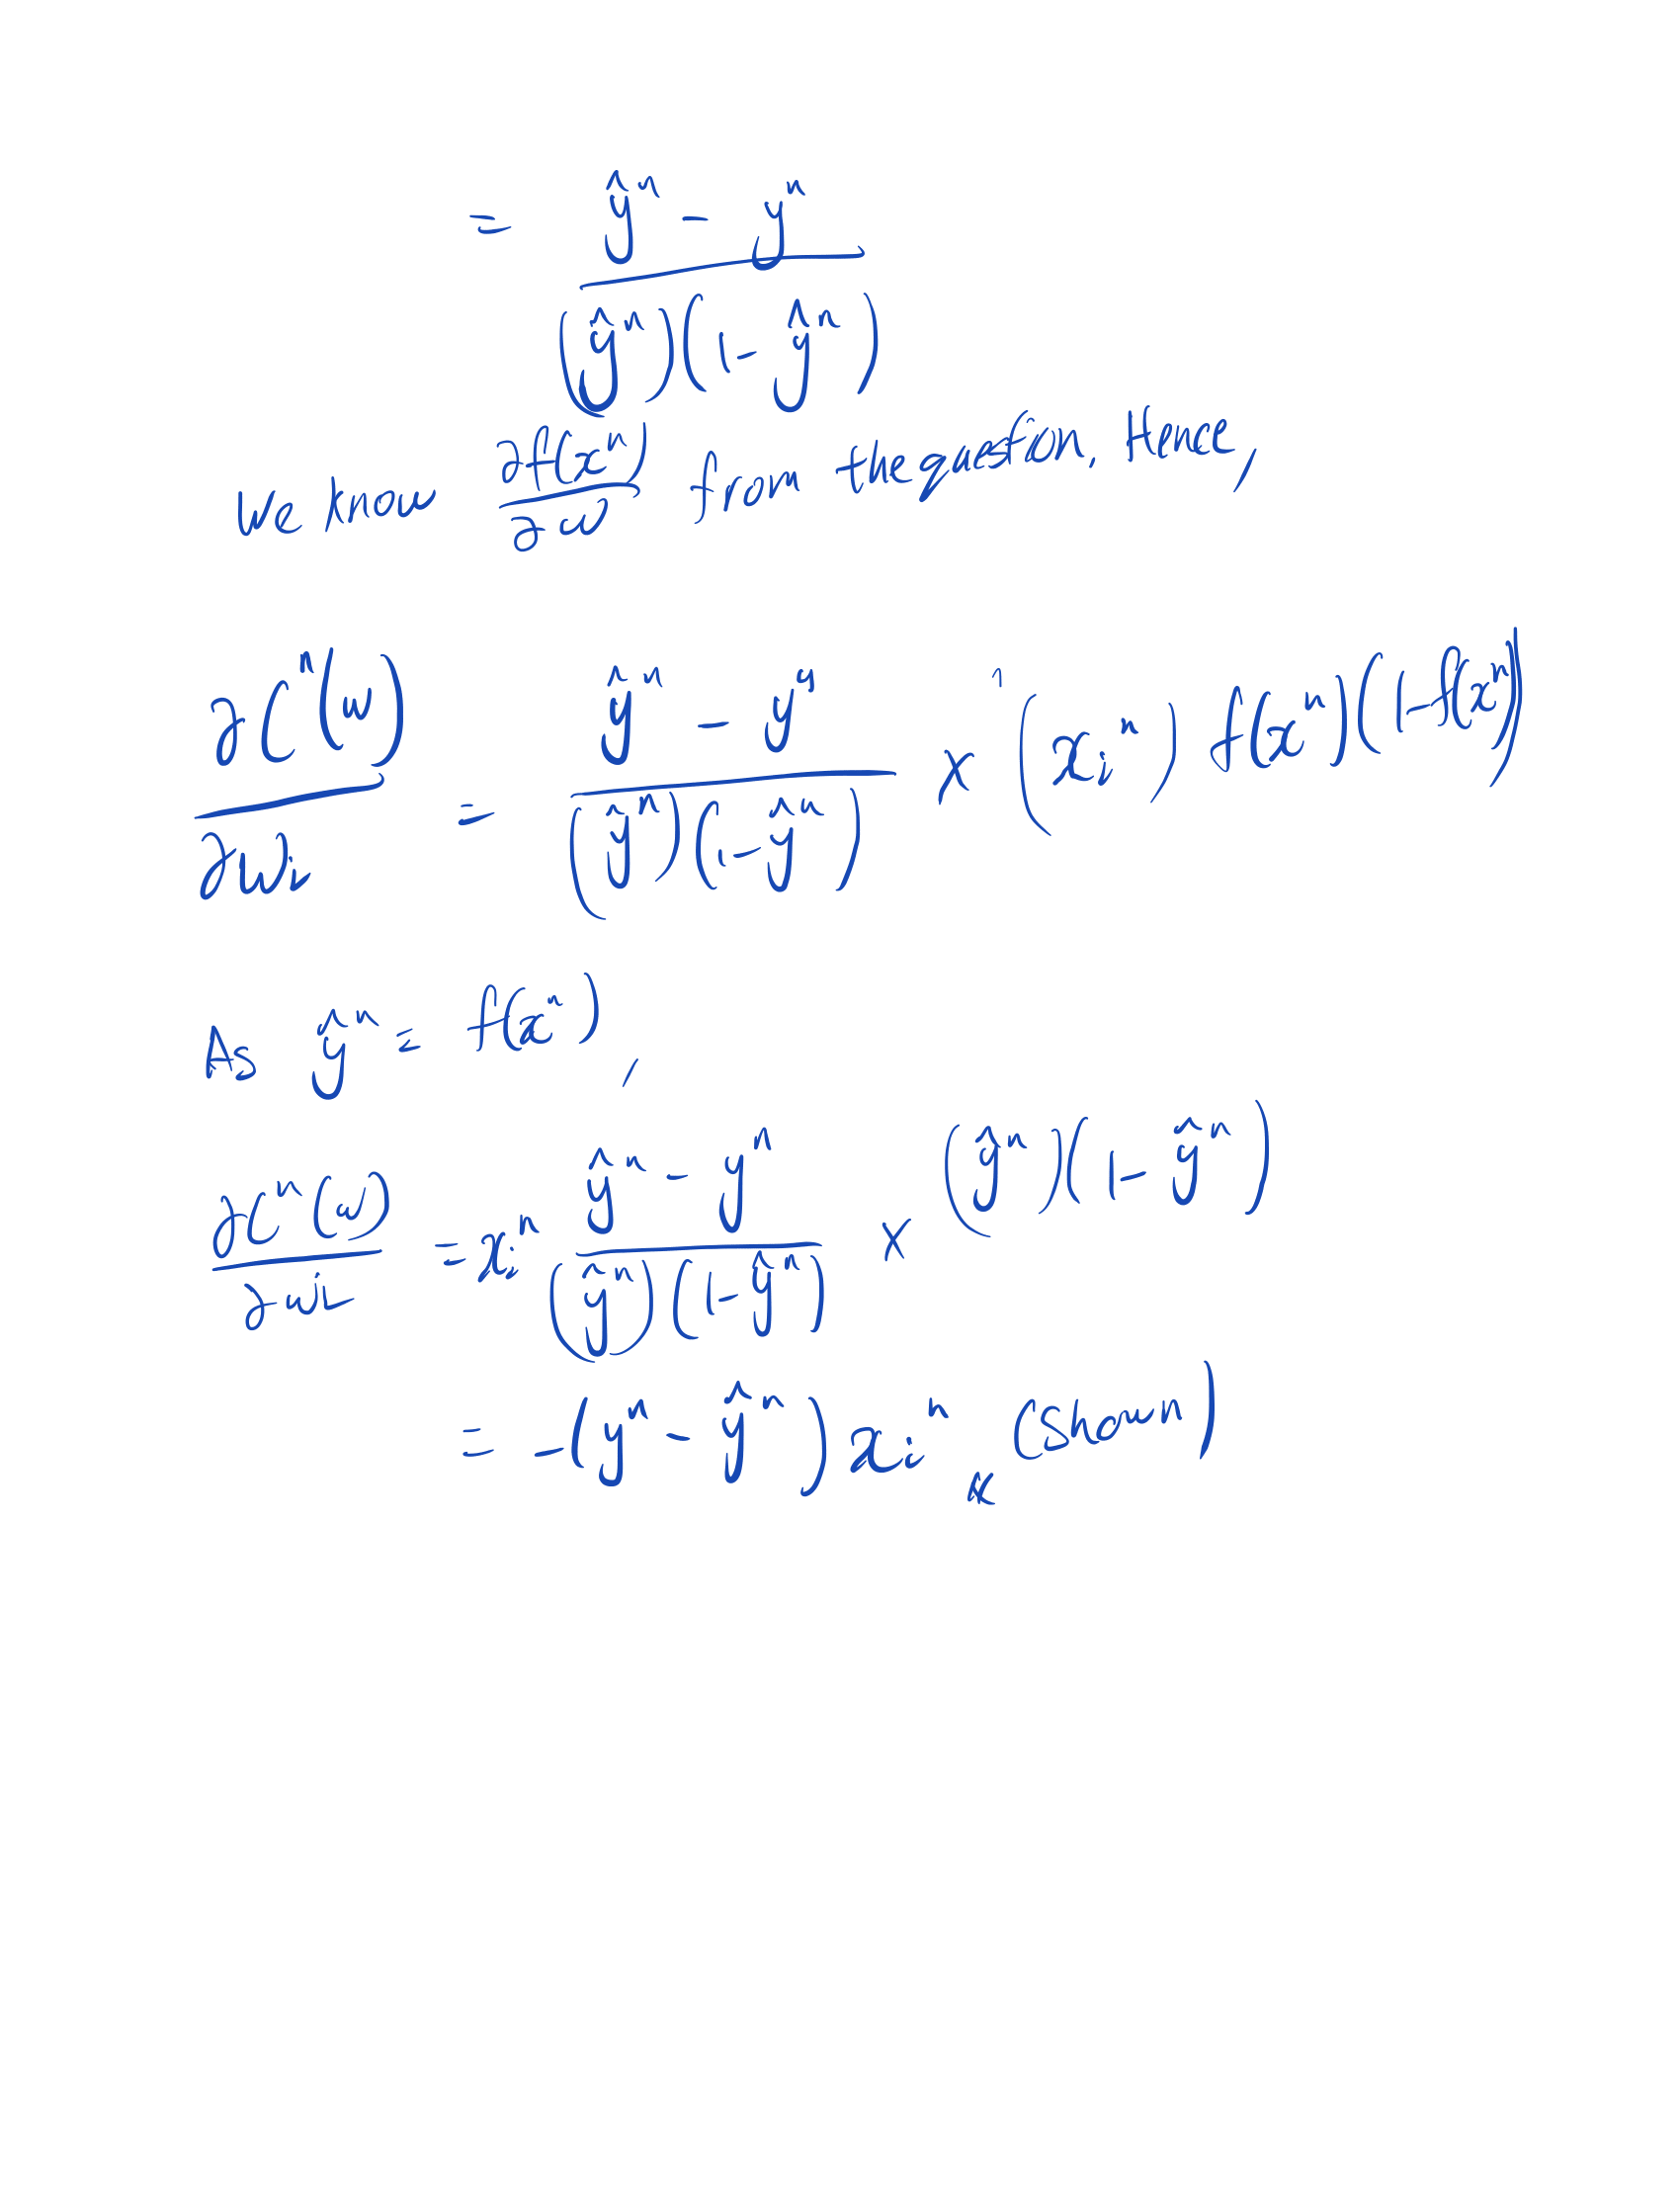 = (ŷⁿ - yⁿ) / ((ŷⁿ)(1 - ŷⁿ))
We know ∂f(xⁿ)/∂w from the question. Hence,
∂Cⁿ(w)/∂wᵢ = (ŷⁿ - yⁿ) / ((ŷⁿ)(1 - ŷⁿ)) × (xᵢⁿ) f(xⁿ)(1 - f(xⁿ))
As ŷⁿ = f(xⁿ),
∂Cⁿ(w)/∂wᵢ = xᵢⁿ (ŷⁿ - yⁿ) / ((ŷⁿ)(1 - ŷⁿ)) × (ŷⁿ)(1 - ŷⁿ)
= -(yⁿ - ŷⁿ) xᵢⁿ (Shown)